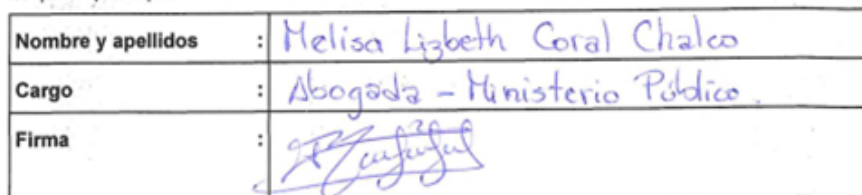 Nombre y apellidos : Melisa Lizbeth Coral Chalco
Cargo : Abogada - Ministerio Público.
Firma :